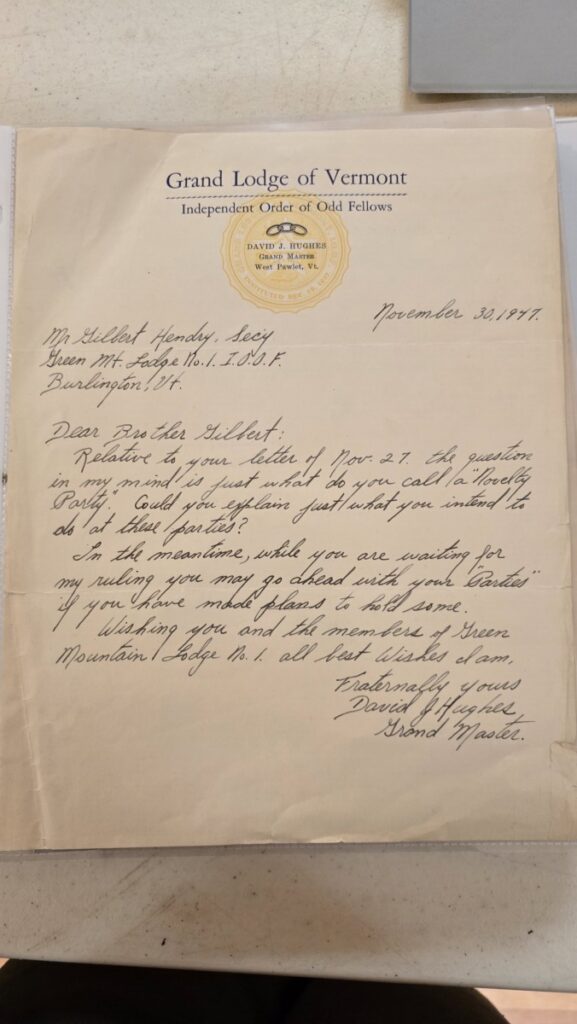 Grand Lodge of Vermont
Independent Order of Odd Fellows
DAVID J. HUGHES
GRAND MASTER
West Pawlet, Vt.
November 30, 1947.
Mr Gilbert Hendry, Secy
Green Mt. Lodge No. 1. I.O.O.F.
Burlington, Vt.
Dear Brother Gilbert:
Relative to your letter of Nov. 27. the question
in my mind is just what do you call a "Novelty
Party". Could you explain just what you intend to
do at these parties?
In the meantime, while you are waiting for
my ruling you may go ahead with your "Parties"
if you have made plans to hold some.
Wishing you and the members of Green
Mountain Lodge No. 1. all best Wishes I am,
Fraternally yours
David J Hughes
Grand Master.